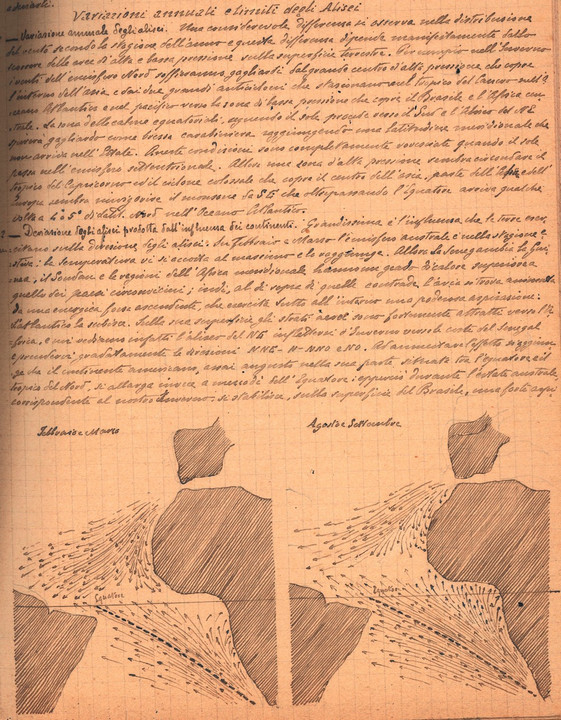 Variazioni annuali e limiti degli Alisei
— Variazione annuale degli alisei. Una considerevole differenza si osserva nella distribuzione
del vento secondo la stagione dell'anno e questa differenza dipende manifestamente dallo
delle aree d'alta e bassa pressione sulla superficie terrestre. Per esempio nell'Inverno
i venti dell'emisfero Nord soffieranno gagliardi dal grande centro d'alta pressione che copre
l'interno dell'Asia e dai due grandi anticicloni che stazionano sul tropico del Cancro nell'O
ceano Atlantico e nel pacifico verso le zone di bassa pressione che copre il Brasile e l'Africa cen
trale. La zona delle calme equatoriali, seguendo il sole prende verso il Sud e l'Aliseo del NE
spirerà gagliardo come brezza raggiungendo una latitudine meridionale che
non arriva nell'Estate. Queste condizioni sono completamente rovesciate quando il sole
passa nell'emisfero settentrionale. Allora una zona d'alta pressione sembra circondare il
tropico del Capricorno ed il ciclone colossale che copre il centro dell'Asia, parte dell'Africa e dell'
Europa sembra rinvigorire il monsone da SE che oltrepassando l'Equatore arriva qualche
volta a 4 o 5° di latit. Nord nell'Oceano Atlantico.
2 — Deviazione degli alisei prodotta dall'influenza dei continenti. Grandissima è l'influenza che le terre eser
citano sulla direzione degli alisei. In Febbraio e Marzo l'emisfero australe è nella stagione e
stiva: la temperatura vi si accosta al massimo e lo raggiunge. Allora la Senegambia la Gui
nea, il Soudan e le regioni dell'Africa meridionale hanno un grado di calore superiore a
quello dei paesi circonvicini; indi, al di sopra di quelle contrade, l'aria si trova animata
da una energica forza ascendente, che esercita tutto all'intorno una poderosa aspirazione:
l'Atlantico la subisce. Sulla sua superficie gli strati aerei sono fortemente attratti verso l'A
frica, e noi vediamo infatti l'aliseo del NE inflettersi d'Inverno verso le coste del Senegal
e prendervi gradatamente le direzioni NNE - N - NNO e NO. Ad aumentare l'effetto si aggiun
ga che il continente americano, assai angusto nella sua parte situata tra l'equatore e il
tropico del Nord, si allarga invece a mezzodì dell'Equatore: eppure durante l'estate australe
corrispondente al nostro Inverno, si stabilisce, sulla superficie del Brasile, una forte aspi
Febbraio e Marzo
Agosto e Settembre
Equatore
Equatore